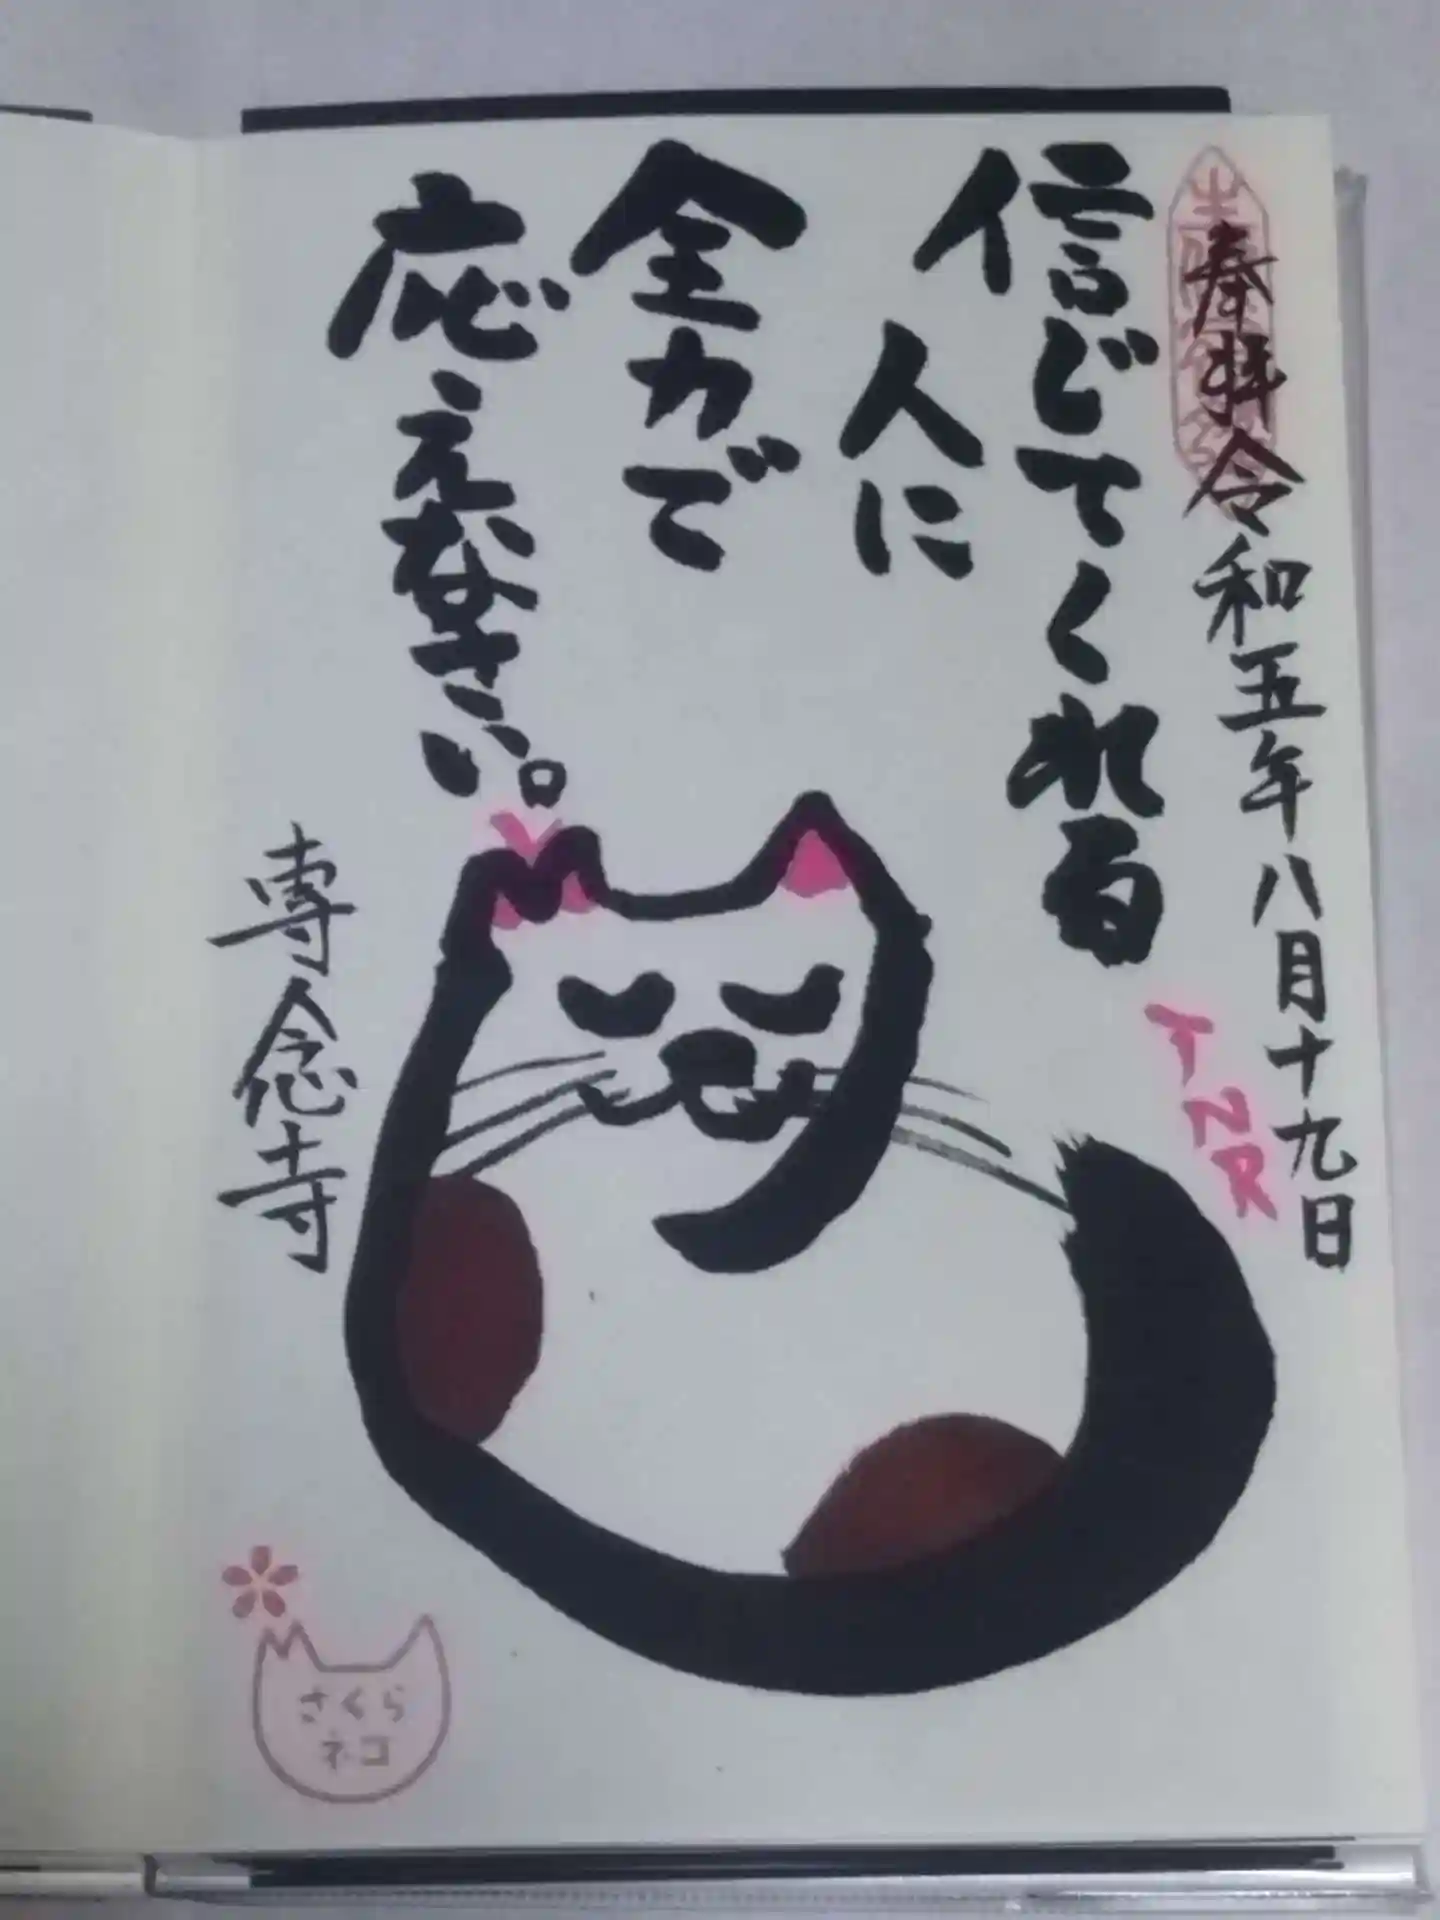 奉拝 令和五年八月十九日
信じてくれる
人に
全力で
応えなさい。
TNR
専念寺
さくら
ネコ